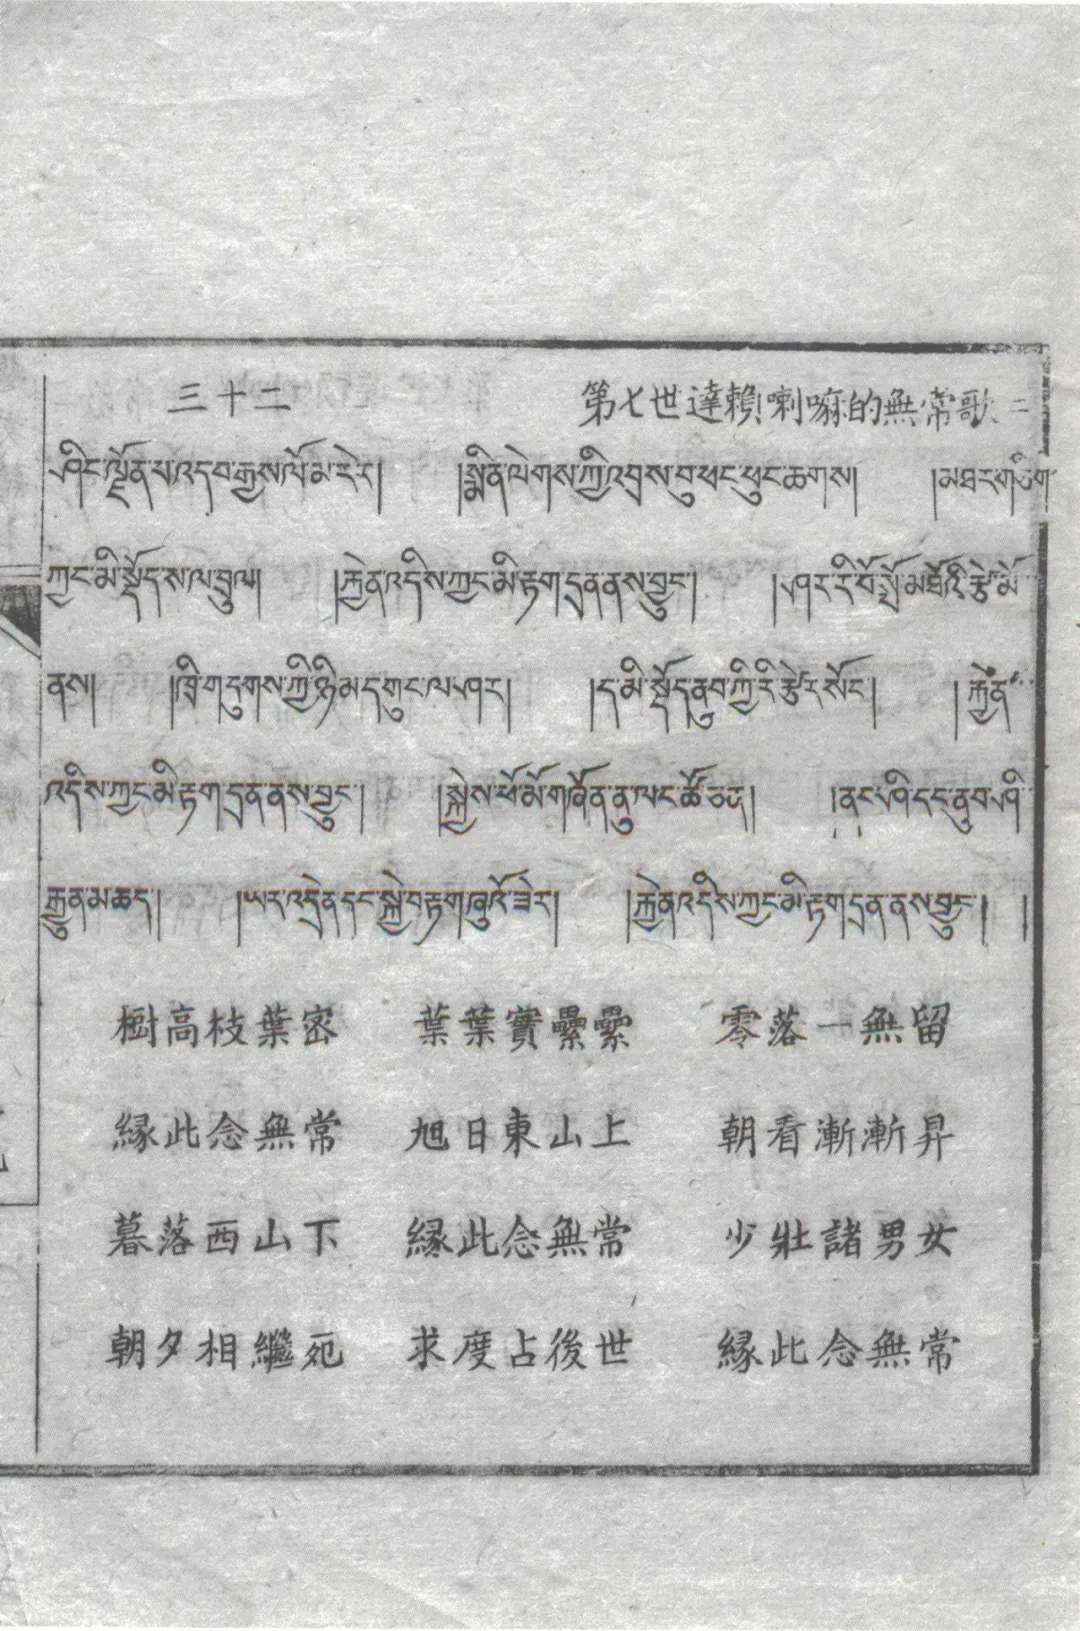 三十二 第七世達賴喇嘛的無常歌 二
ཤིང་ལྗོན་པ་འདབ་རྒྱས་ལོ་མ་དེར། །སྨིན་ལེགས་ཀྱི་འབྲས་བུ་ཕང་ཕུང་ཆགས། །མཐར་གཅིག་
ཀྱང་མི་སྡོད་ས་ལ་བྲུལ། །རྐྱེན་འདིས་ཀྱང་མི་རྟག་དྲན་ནས་བྱུང་། །ཤར་རི་བོ་སྤོ་མཐོའི་རྩེ་མོ་
ནས། །ཁྲི་གདུགས་ཀྱི་ཉི་མ་དགུང་ལ་ཤར། །ད་མི་སྡོད་ནུབ་ཀྱི་རི་རྩེར་སོང་། །རྐྱེན་
འདིས་ཀྱང་མི་རྟག་དྲན་ནས་བྱུང་། །སྐྱེས་ཕོ་མོ་གཞོན་ནུ་ལང་ཚོ་ཅན། །ནང་ཤི་དང་ནུབ་ཤི་
རྒྱུན་མ་ཆད། །ཡར་འདྲེན་དང་སྐྱེ་བ་རྟག་ཞུའོ་ཟེར། །རྐྱེན་འདིས་ཀྱང་མི་རྟག་དྲན་ནས་བྱུང་། །
樹高枝葉密 葉葉實纍纍 零落一無留
緣此念無常 旭日東山上 朝看漸漸昇
暮落西山下 緣此念無常 少壯諸男女
朝夕相繼死 求度占後世 緣此念無常